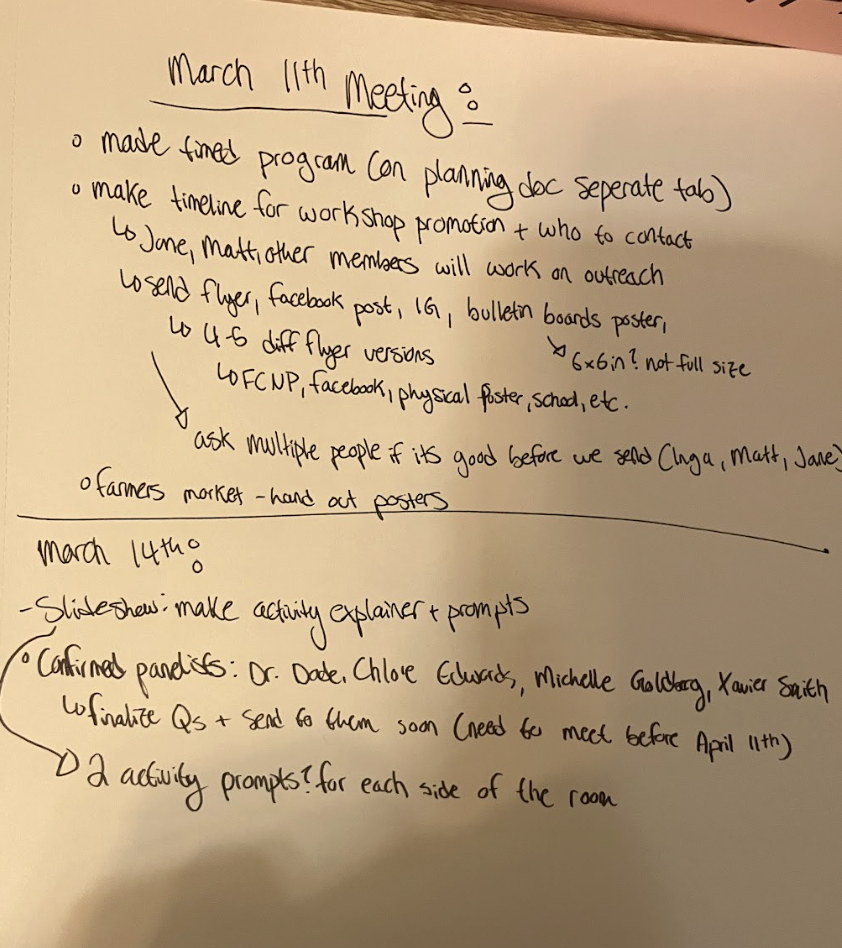 March 11th Meeting:
o made timed program (on planning doc seperate tab)
o make timeline for workshop promotion + who to contact
↳ Jane, Matt, other members will work on outreach
↳ send flyer, facebook post, IG, bulletin boards poster,
↳ 6x6in? not full size
↳ 4-6 diff flyer versions
↳ FCNP, facebook, physical poster, school, etc.
ask multiple people if its good before we send (Inga, Matt, Jane)
o farmers market - hand out posters
March 14th:
- Slideshow: make activity explainer + prompts
o Confirmed panelists: Dr. Dade, Chloe Edwards, Michelle Goldberg, Xavier Smith
↳ finalize Qs + send to them soon (need to meet before April 11th)
2 activity prompts? for each side of the room